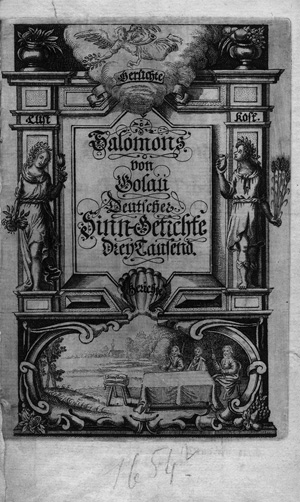 Lust
Kost.
Salomons
von
Golau
Deutscher
Sinn-Getichte
Drey Tausend.
1654